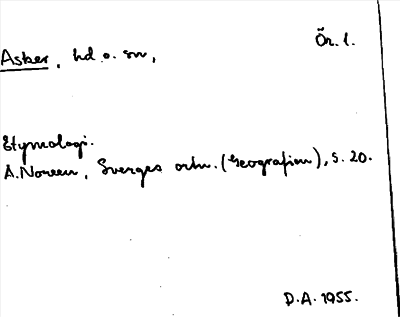 Ör. l.
Asker, hd o. sn,
Etymologi.
A. Noreen, Sveriges ortn. (Geografien), s. 20.
D.A. 1955.